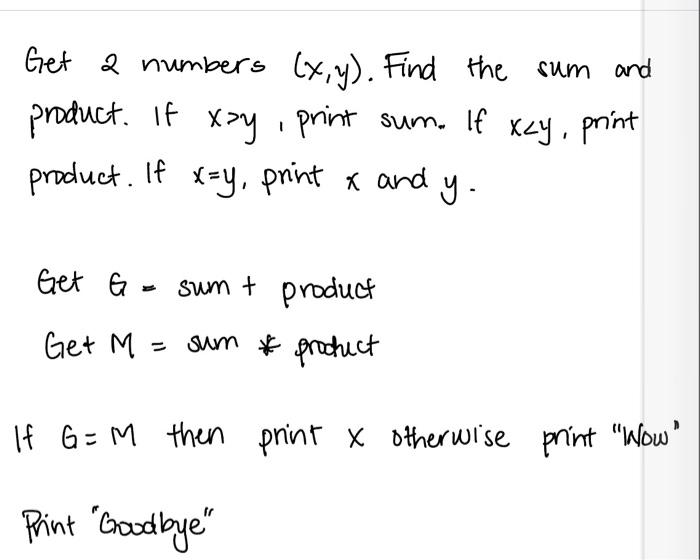 Get 2 numbers (x,y). Find the sum and
product. If x>y, print sum. If x<y, print
product. If x=y, print x and y.
Get G = sum + product
Get M = sum * product
If G = M then print x otherwise print "Wow"
Print "Goodbye"